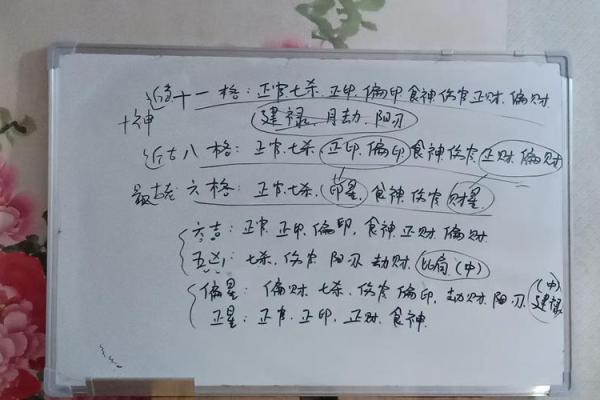 近十一格：正官.七杀.正印.偏印.食神.伤官.正财.偏财.
十神
建禄.月劫.阳刃
近古八格：正官.七杀.正印.偏印.食神.伤官.正财.偏财
最古 六格：正官.七杀.印星.食神.伤官.财星
六吉：正官.正印.偏印.食神.正财.偏财.
五凶：七杀.伤官.阳刃.劫财.比肩.(中)
偏星：偏财.七杀.伤官.偏印.劫财.阳刃.(中)建禄
正星：正官.正印.正财.食神.